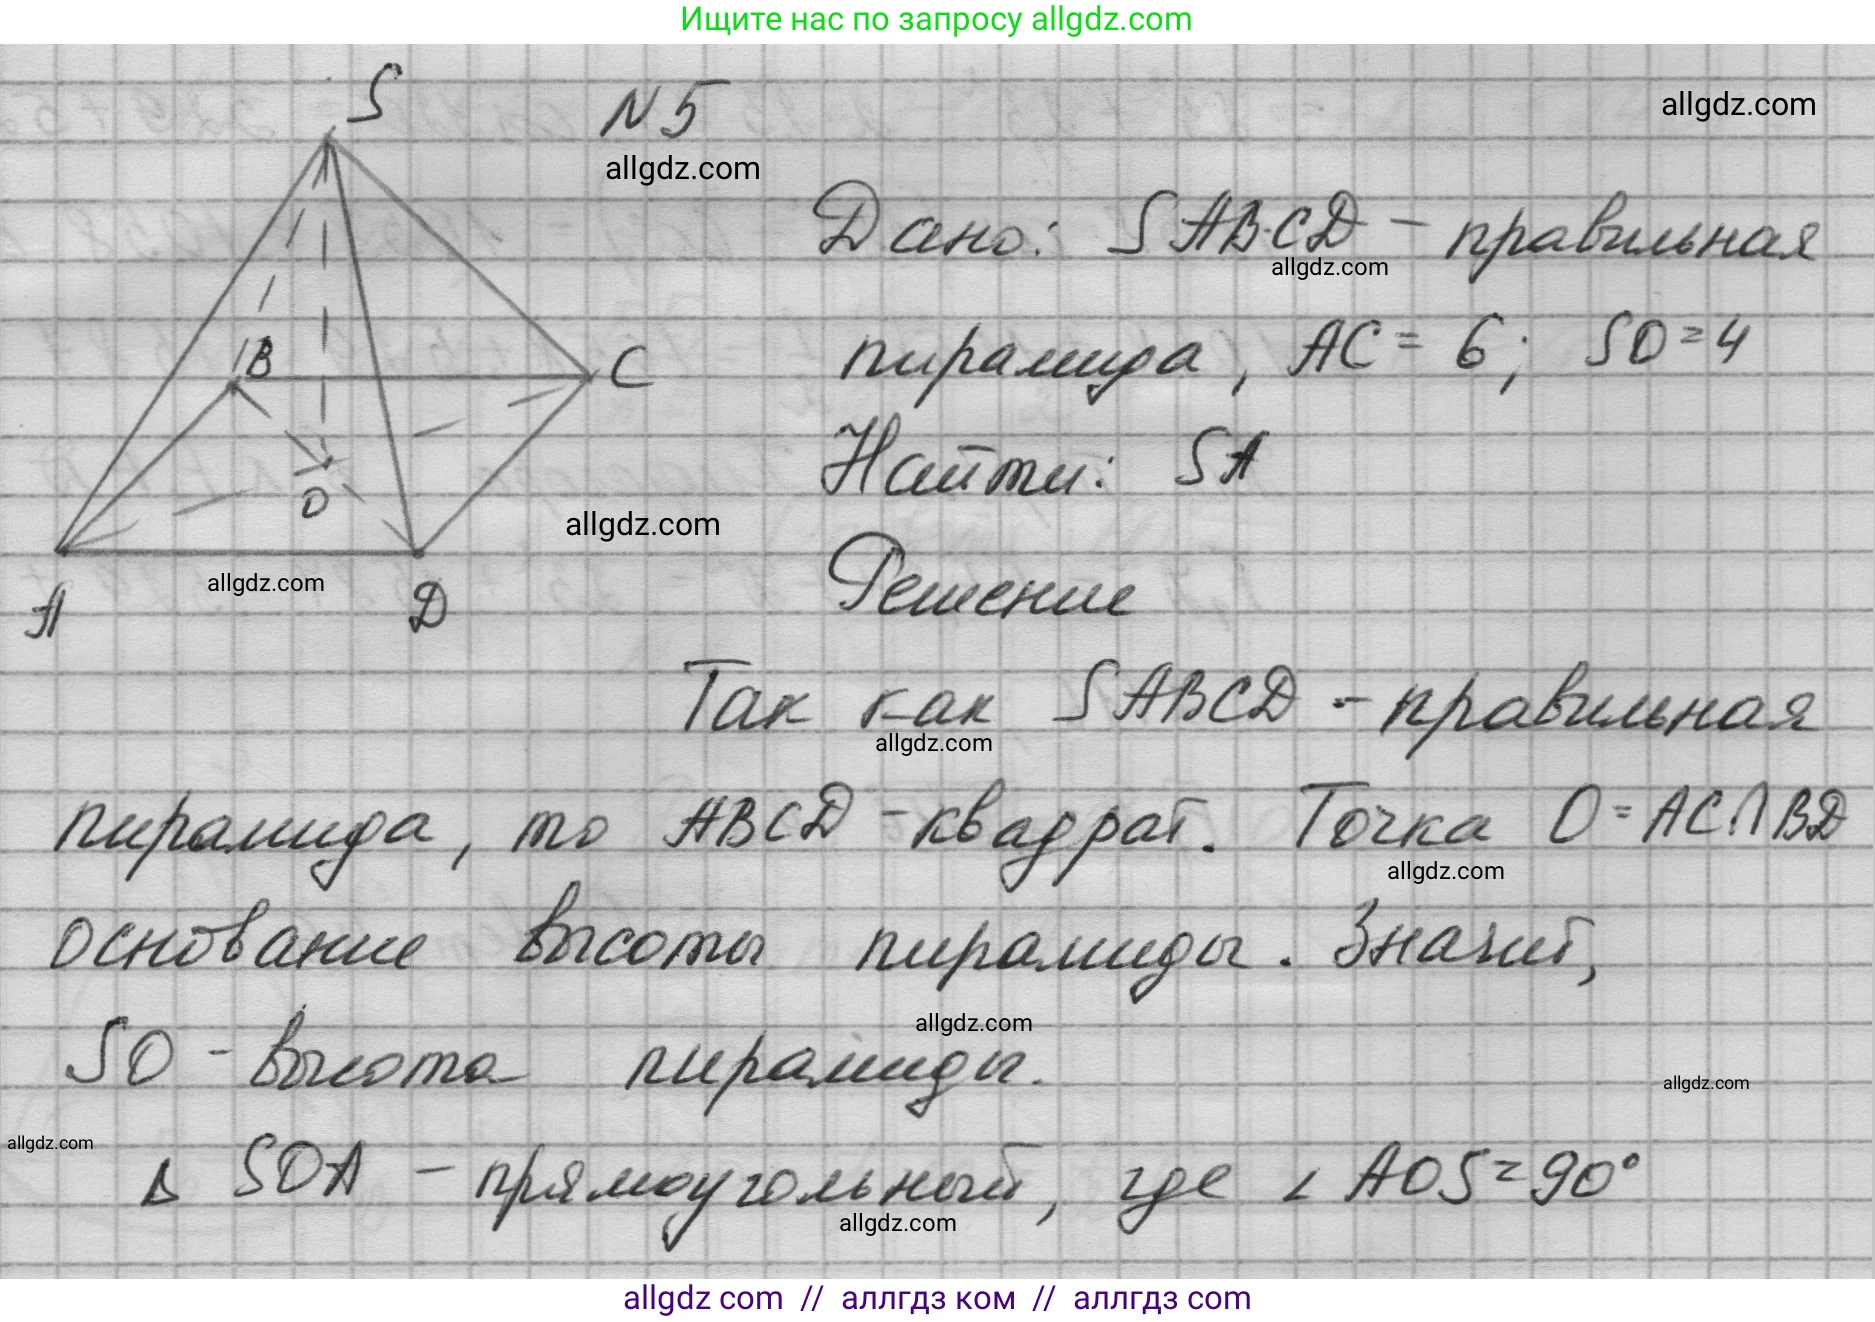 Ищите нас по запросу allgdz.com
S
N 5
allgdz.com
allgdz.com
Дано: SABCD - правильная
allgdz.com
B
C
пирамида, AC = 6; SO = 4
Найти: SA
O
allgdz.com
allgdz.com
Решение
A
D
Так как SABCD - правильная
allgdz.com
пирамида, то ABCD - квадрат. Точка O = AC ∩ BD
allgdz.com
основание высоты пирамиды. Значит,
allgdz.com
SO - высота пирамиды.
allgdz.com
allgdz.com
Δ SOA - прямоугольный, где ∠ AOS = 90°
allgdz.com
allgdz com // аллгдз ком // аллгдз com